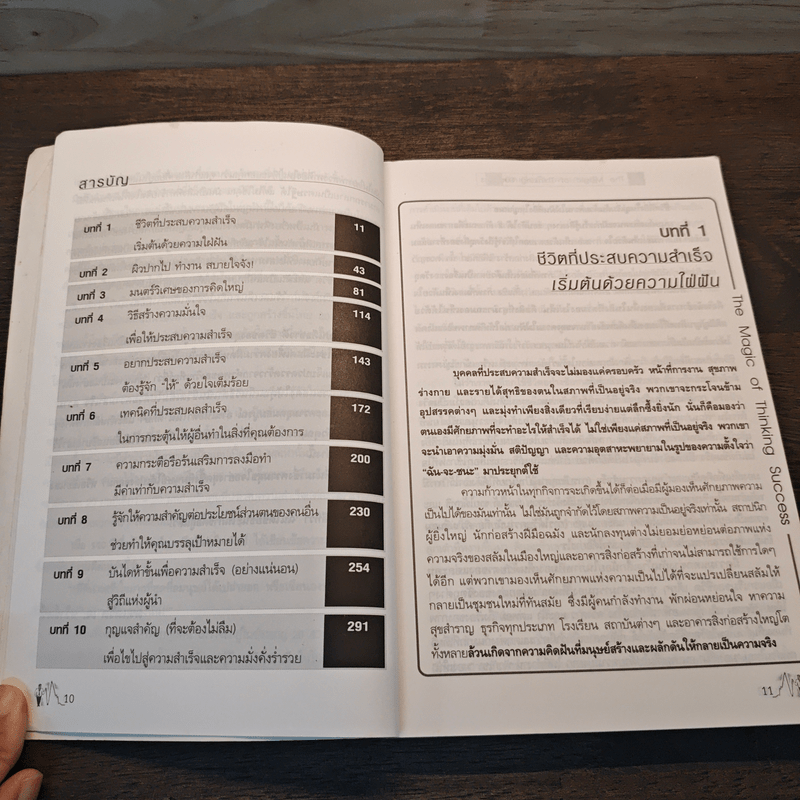 สารบัญ
บทที่ 1 ชีวิตที่ประสบความสำเร็จ 11
เริ่มต้นด้วยความใฝ่ฝัน
บทที่ 2 ผิวปากไป ทำงาน สบายใจจัง! 43
บทที่ 3 มนตร์วิเศษของการคิดใหญ่ 81
บทที่ 4 วิธีสร้างความมั่นใจ 114
เพื่อให้ประสบความสำเร็จ
บทที่ 5 อยากประสบความสำเร็จ 143
ต้องรู้จัก "ให้" ด้วยใจเต็มร้อย
บทที่ 6 เทคนิคที่ประสบผลสำเร็จ 172
ในการกระตุ้นให้ผู้อื่นทำในสิ่งที่คุณต้องการ
บทที่ 7 ความกระตือรือร้นเสริมการลงมือทำ 200
มีค่าเท่ากับความสำเร็จ
บทที่ 8 รู้จักให้ความสำคัญต่อประโยชน์ส่วนตนของคนอื่น 230
ช่วยทำให้คุณบรรลุเป้าหมายได้
บทที่ 9 บันไดห้าขั้นเพื่อความสำเร็จ (อย่างแน่นอน) 254
สู่วิถีแห่งผู้นำ
บทที่ 10 กุญแจสำคัญ (ที่จะต้องไม่ลืม) 291
เพื่อไขไปสู่ความสำเร็จและความมั่งคั่งร่ำรวย
10
บทที่ 1
ชีวิตที่ประสบความสำเร็จ
เริ่มต้นด้วยความใฝ่ฝัน
The Magic of Thinking Success
บุคคลที่ประสบความสำเร็จจะไม่มองแค่ครอบครัว หน้าที่การงาน สุขภาพ
ร่างกาย และรายได้สุทธิของตนในสภาพที่เป็นอยู่จริง พวกเขาจะกระโจนข้าม
อุปสรรคต่างๆ และมุ่งทำเพียงสิ่งเดียวที่เรียบง่ายแต่ลึกซึ้งยิ่งนัก นั่นก็คือมองว่า
ตนเองมีศักยภาพที่จะทำอะไรให้สำเร็จได้ ไม่ใช่เพียงแค่สภาพที่เป็นอยู่จริง พวกเขา
จะนำเอาความมุ่งมั่น สติปัญญา และความอุตสาหะพยายามในรูปของความตั้งใจว่า
"ฉัน-จะ-ชนะ" มาประยุกต์ใช้
ความก้าวหน้าในทุกกิจการจะเกิดขึ้นได้ก็ต่อเมื่อมีผู้มองเห็นศักยภาพความ
เป็นไปได้ของมันเท่านั้น ไม่ใช่มันถูกจำกัดไว้โดยสภาพความเป็นอยู่จริงเท่านั้น สถาปนิก
ผู้ยิ่งใหญ่ นักก่อสร้างฝีมือฉมัง และนักลงทุนต่างไม่ยอมย่อหย่อนต่อภาพแห่ง
ความจริงของสลัมในเมืองใหญ่และอาคารสิ่งก่อสร้างที่เก่าจนไม่สามารถใช้การใดๆ
ได้อีก แต่พวกเขามองเห็นศักยภาพแห่งความเป็นไปได้ที่จะแปรเปลี่ยนสลัมให้
กลายเป็นชุมชนใหม่ที่ทันสมัย ซึ่งมีผู้คนกำลังทำงาน พักผ่อนหย่อนใจ หาความ
สุขสำราญ ธุรกิจทุกประเภท โรงเรียน สถาบันต่างๆ และอาคารสิ่งก่อสร้างใหญ่โต
ทั้งหลายล้วนเกิดจากความคิดฝันที่มนุษย์สร้างและผลักดันให้กลายเป็นความจริง
11